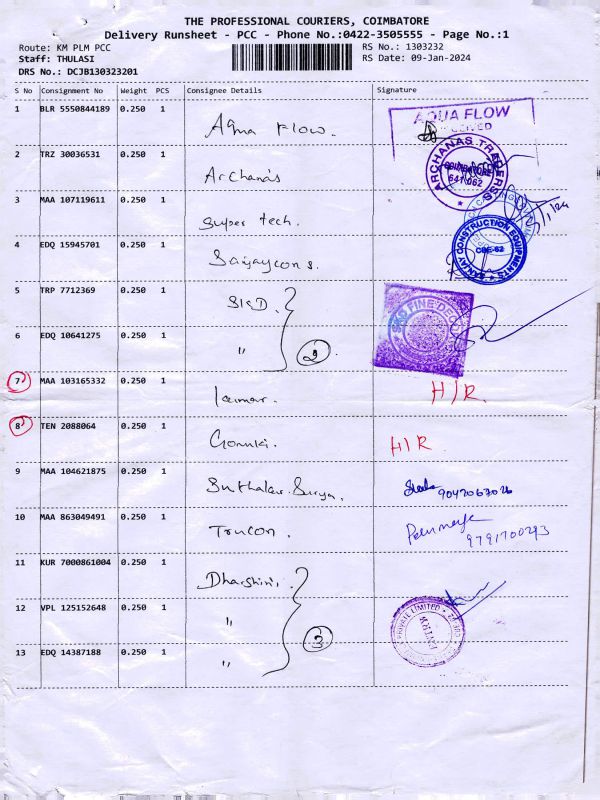 THE PROFESSIONAL COURIERS, COIMBATORE
Delivery Runsheet - PCC - Phone No.:0422-3505555 - Page No.:1
Route: KM PLM PCC
RS No.: 1303232
Staff: THULASI
RS Date: 09-Jan-2024
DRS No.: DCJB130323201
S No Consignment No Weight PCS Consignee Details Signature
1 BLR 5550844189 0.250 1 Aqua Flow. AQUA FLOW
2 TRZ 30036531 0.250 1 Archanas ARCHANAS TRADERS COIMBATORE 641 062
3 MAA 107119611 0.250 1 Super tech.
4 EDQ 15945701 0.250 1 Sanjaycons. SANJAY CONSTRUCTION EQUIPMENTS CBE-62
5 TRP 7712369 0.250 1 SISD
6 EDQ 10641275 0.250 1 " 2
7 MAA 103165332 0.250 1 H/R.
8 TEN 2088064 0.250 1 H/R
9 MAA 104621875 0.250 1 9042067026
10 MAA 863049491 0.250 1 Trucon. 9791700293
11 KUR 7000861004 0.250 1 Dharshini.
12 VPL 125152648 0.250 1 " PRIVATE LIMITED
13 EDQ 14387188 0.250 1 " 3